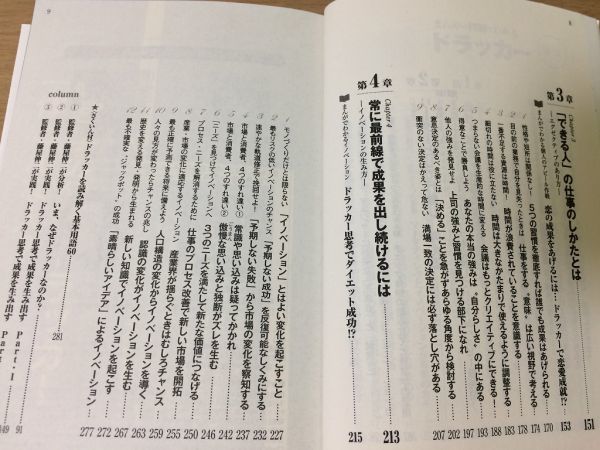 8
第3章
「できる人」の仕事のしかたとは 151
まんがでわかる新人のアピール作戦 恋の成果をあげるには… ドラッカーで恋愛成就!? 153
1 性格や短所は関係なし! 5つの習慣を徹底すれば誰でも成果はあげられる 170
2 目の前の業務で自分を見失ったときは 仕事をする〝意味〟は広い視野で考える 174
3 一番不足する資源は時間! 時間が浪費されていることを意識する 178
4 細切れの時間は役に立たない 時間は大きなかたまりで使えるように調整する 183
5 まとまらない会議を生産的な時間に変える 会議はもっとクリエイティブにできる! 188
6 得意なことで勝負する あなたの本当の強みは〝自分らしさ〟の中にある 193
7 他人の強みを発見せよ 上司の強みと習慣を見つける部下になれ 197
8 意思決定のあるべき姿とは 「決める」ことを急がずあらゆる角度から検討する 202
9 衝突のない決定はかえって危ない 満場一致の決定には必ず落とし穴がある 207
Chapter 4
第4章
常に最前線で成果を出し続けるには 213
―イノベーションの生み方―
まんがでわかるイノベーション ドラッカー思考でダイエット成功!? 215
9
1 モノづくりだけとは限らない 「イノベーション」とはよい変化を起こすこと 227
2 最もリスクの低いイノベーションのチャンス 「予期しない成功」を反復可能なしくみにする 232
3 速やかな軌道修正で挽回せよ! 「予期しない失敗」から市場の変化を察知する 237
4 市場と消費者、4つのすれ違い① 常識や思い込みは疑ってかかれ 242
5 市場と消費者、4つのすれ違い② 傲慢な思い込みと独断がズレを生む 246
6 「ニーズ」を見つけてイノベーションへ 3つのニーズを満たして新たな価値につなげる 250
7 プロセス・ニーズを解消するために 仕事のプロセス改善で新しい市場を開拓 255
8 産業・市場の変化に適応するイノベーション 産業界が揺らぐときはむしろチャンス 259
9 最も正確に予測できる将来に備えよう 人口構造の変化からイノベーションを導く 263
10 人々の見方が変わったらチャンスの兆し 認識の変化がイノベーションを導く 267
11 歴史を変える発見・発明から生まれる 新しい知識でイノベーションを生む 272
12 最も不確実な「ジャックポット」の成功 「素晴らしいアイデア」によるイノベーション 277
★さくいん付 ドラッカーを読み解く基本用語60 281
column
① 監修者・藤屋伸二が分析! いま、なぜドラッカーなのか?
② 監修者・藤屋伸二が実践! ドラッカー思考で成果を生み出す Part・Ⅰ 91
③ 監修者・藤屋伸二が実践! ドラッカー思考で成果を生み出す Part 149